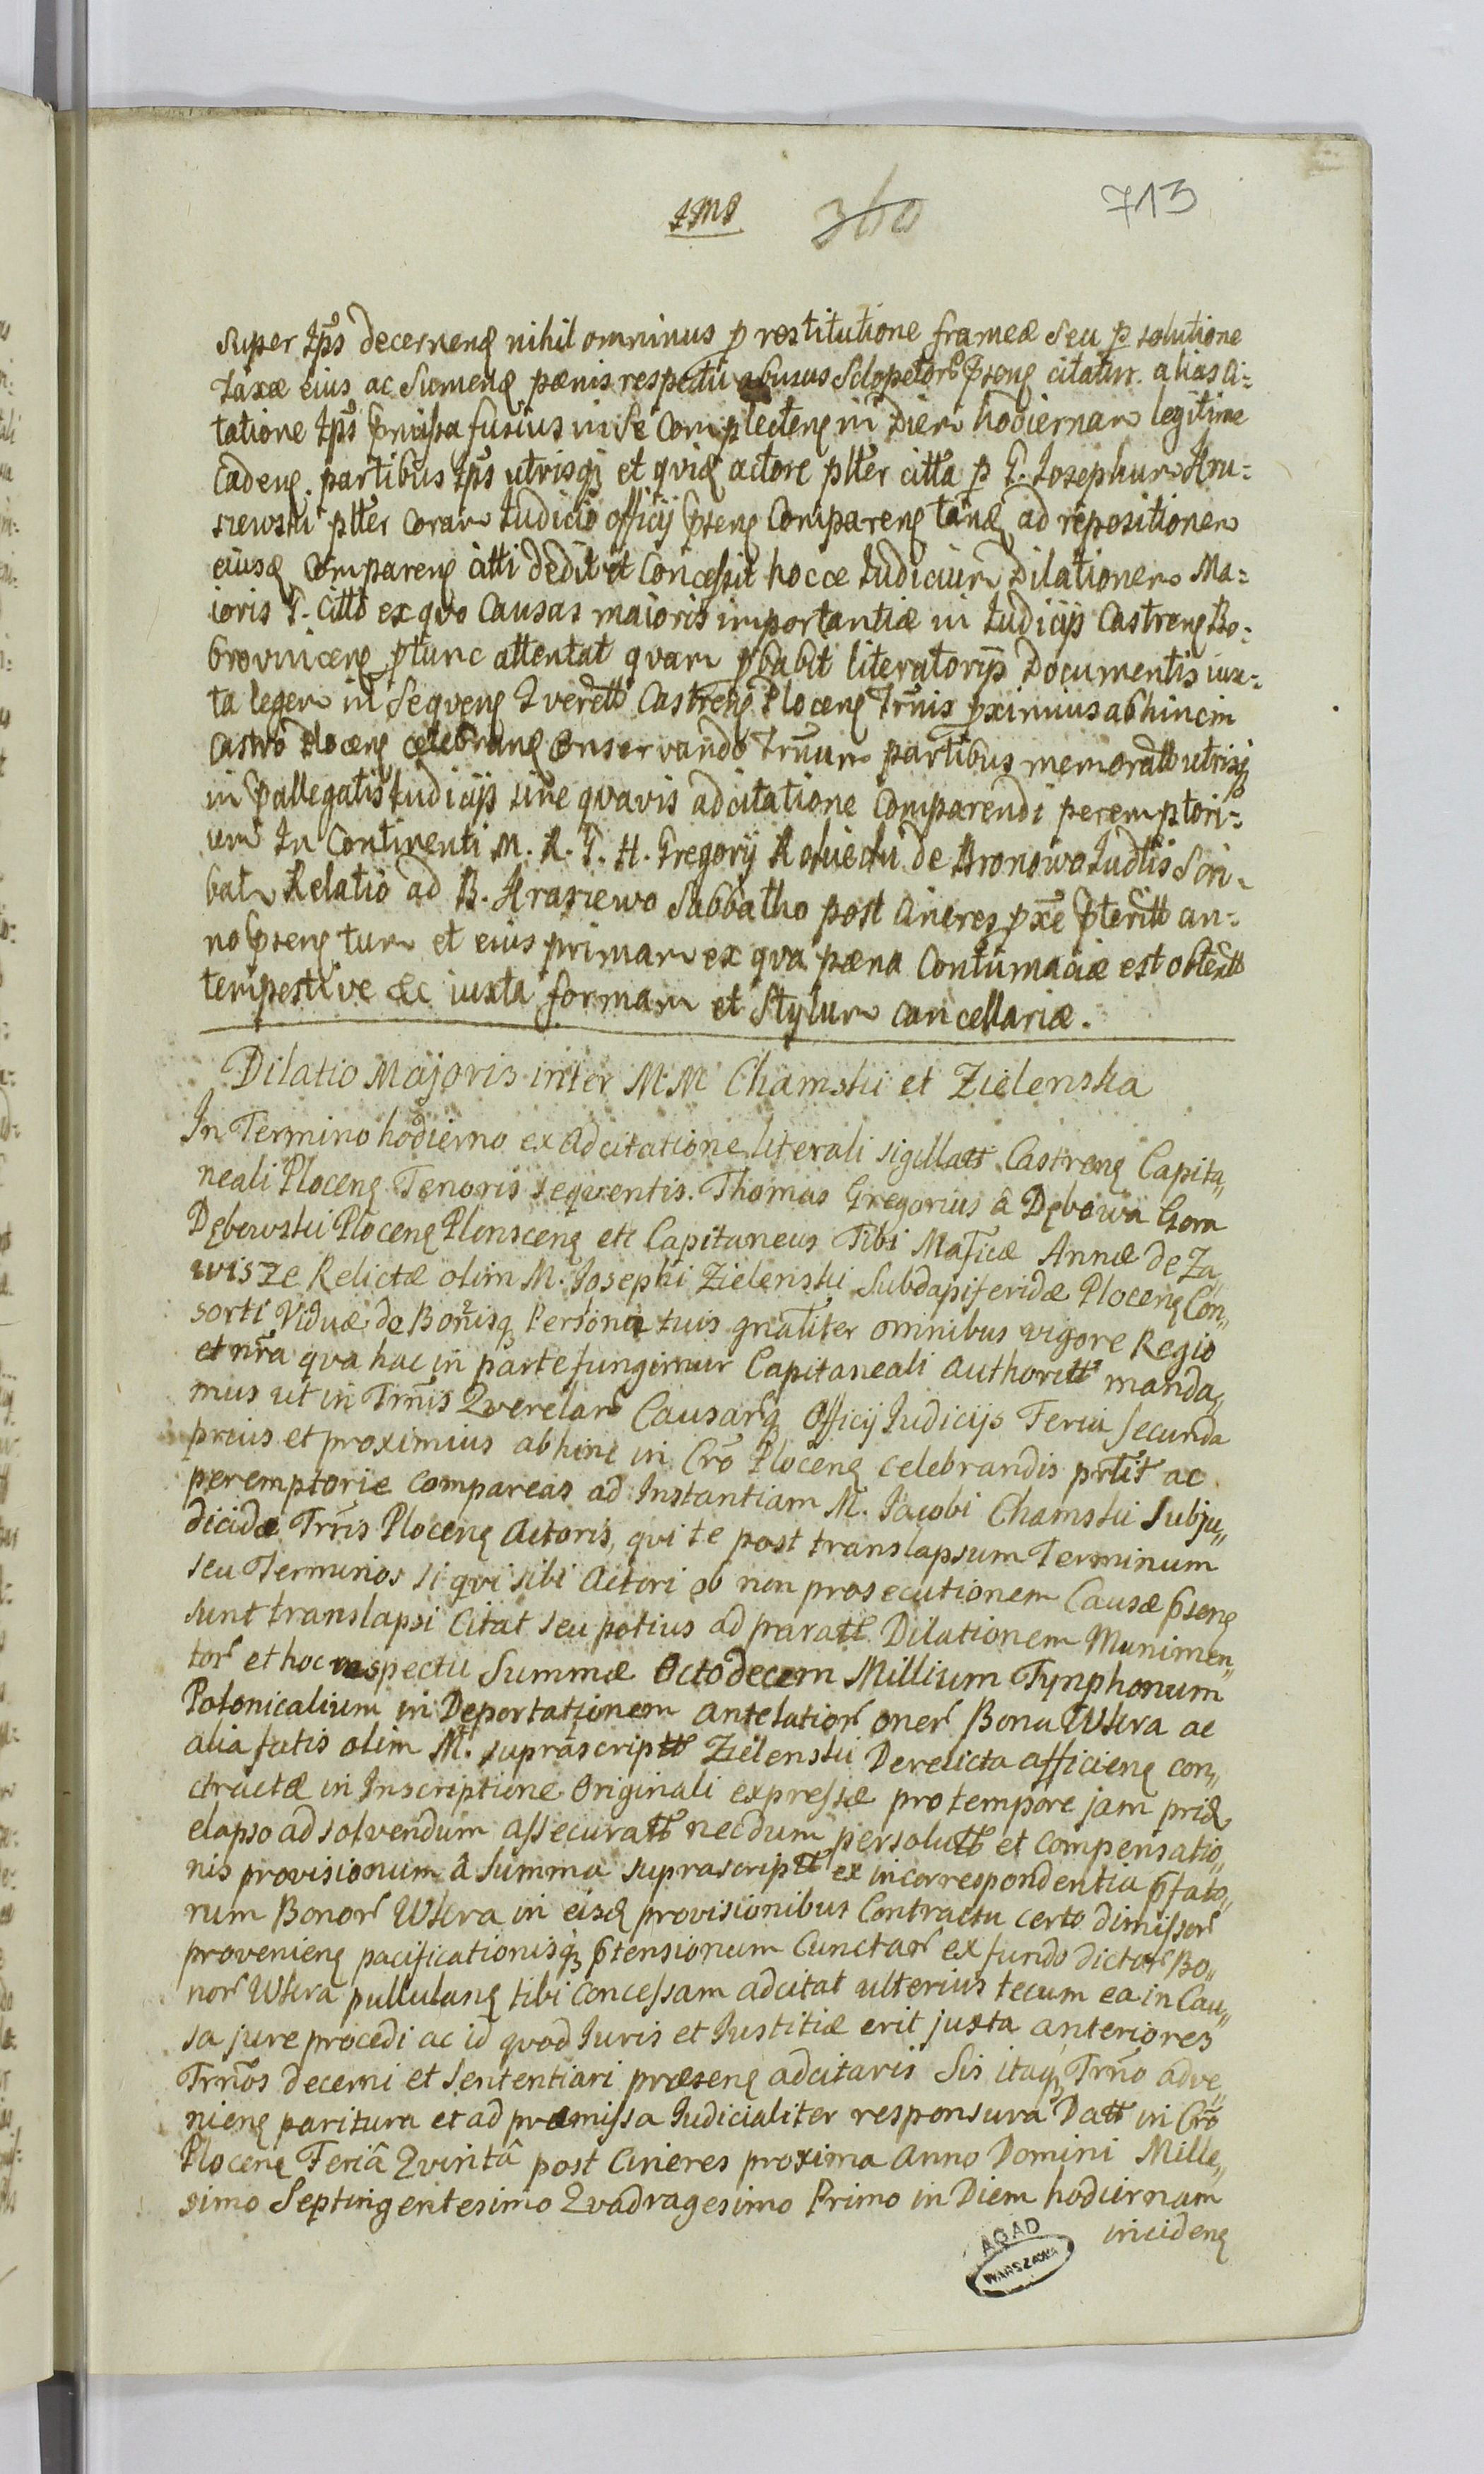 1MS 360 713
super Ip̄s decerneñ nihil omninus p restitutione frameæ seu p solutione
taxæ eius ac sumeñ pænis respectu abusus Sclopetor̃ p̄señ citatur. alias ci=
tatione Ip̄s p̄missa fusius in se complecteñ in Diem hodiernam legitime
Cadeñ partibus Ip̄s utrisq; et qvid actore pltter citta p G. Josephum Kra=
szewski pltter coram Judicio officij p̄señ Compareñ tand ad repositionem
eiusd Compareñ citti dedit et Concessit hocce Judicium Dilationem Ma=
ioris G. Citto ex qvo Causas maioris importantiæ in Judicijs Castreñ Bo=
brovniceñ p̄tunc attentat qvam p̄babit literatorijs Documentis iux=
ta legem in Seqveñ Qverett Castreñ Ploceñ Trm̄is p̄ximius abhinc in
Castro Ploceñ celebrañ Conservando Trm̄um partibus memoratt utrisq;
in p̄allegatis Judicijs sine qvavis adcitatione comparendi peremptori=
um In Continenti M. R. G. H. Gregorij Rościcki de Bronowo Judtis Scri=
bat Relatio ad B. Kraszewo Sabbatho post Cineres pxe p̄teritt an=
no p̄señ tum et eius primam ex qva pæna Contumaciæ est obtentt
tempestive &c iuxta formam et Stylum cancellariæ.
Dilatio Majoris inter M M Chamski et Zielenska
In Termino hodierno ex adcitatione literali sigillatt Castreñ Capita„
neali Ploceñ Tenoris seqventis. Thomas Gregorius â Dębowa Gora
Dębowski Ploceñ Plonsceñ etc Capitaneus Tibi Mafícæ Annæ de Za„
wisze Relictæ olim M. Josephi Zielenski Subdapiferidæ Ploceñ Con„
sorti Viduæ de Bonisq; Persona tuis gnaliter omnibus vigore Regio
et nr̃a qva hac in parte fungimur Capitaneali authoritt manda„
mus ut in Trm̄is Qverelar̃ Causarq; Officij Judicijs Feria Secunda
prius et proximius abhinc in Cr̃o Ploceñ celebrandis prltt ac
peremptorie compareas ad Instantiam M. Jacobi Chamski Subju„
dicidæ Trr̃is Ploceñ Actoris, qvi te post translapsum Terminum
seu Terminos si qvi sibi Actori ob non prosecutionem Causæ p̄señ
sunt translapsi Citat seu potius ad paratt Dilationem Munimen„
tor̃ et hoc respectu Summæ Octodecem Millium Tymphonum
Polonicalium in Deportationem antelatior̃ oner̃ Bona Wkra ac
alia fatis olim M. suprascriptt Zielenski Derelicta afficieñ con„
tractæ in Inscriptione Originali expressæ pro tempore jam prid
elapso ad solvendum assecuratt necdum persolutt et compensatio„
nis provisionum â Summa suprascriptt ex incorrespondentia p̄fato„
rum Bonor̃ Wkra in eisd provisionibus Contractu certo dimissor̃
provenieñ pacificationisq; p̄tensionum Cunctar̃ ex fundo dictor̃ Bo„
nor̃ Wkra pullulañ tibi concessam adcitat ulterius tecum ea in Cau„
sa jure procedi ac id qvod Juris et Justitiæ erit juxta anteriores
Trm̄os decerni et sententiari præseñ adcitaris Sis itaq; Trm̄o adve„
nieñ paritura et ad præmissa Judicialiter responsura Datt in Cr̃o
Ploceñ Feriâ Qvintâ post Cineres proxima Anno Domini Mille„
simo Septingentesimo Qvadragesimo Primo in Diem hodiernam
incideñ
AGAD
WARSZAWA